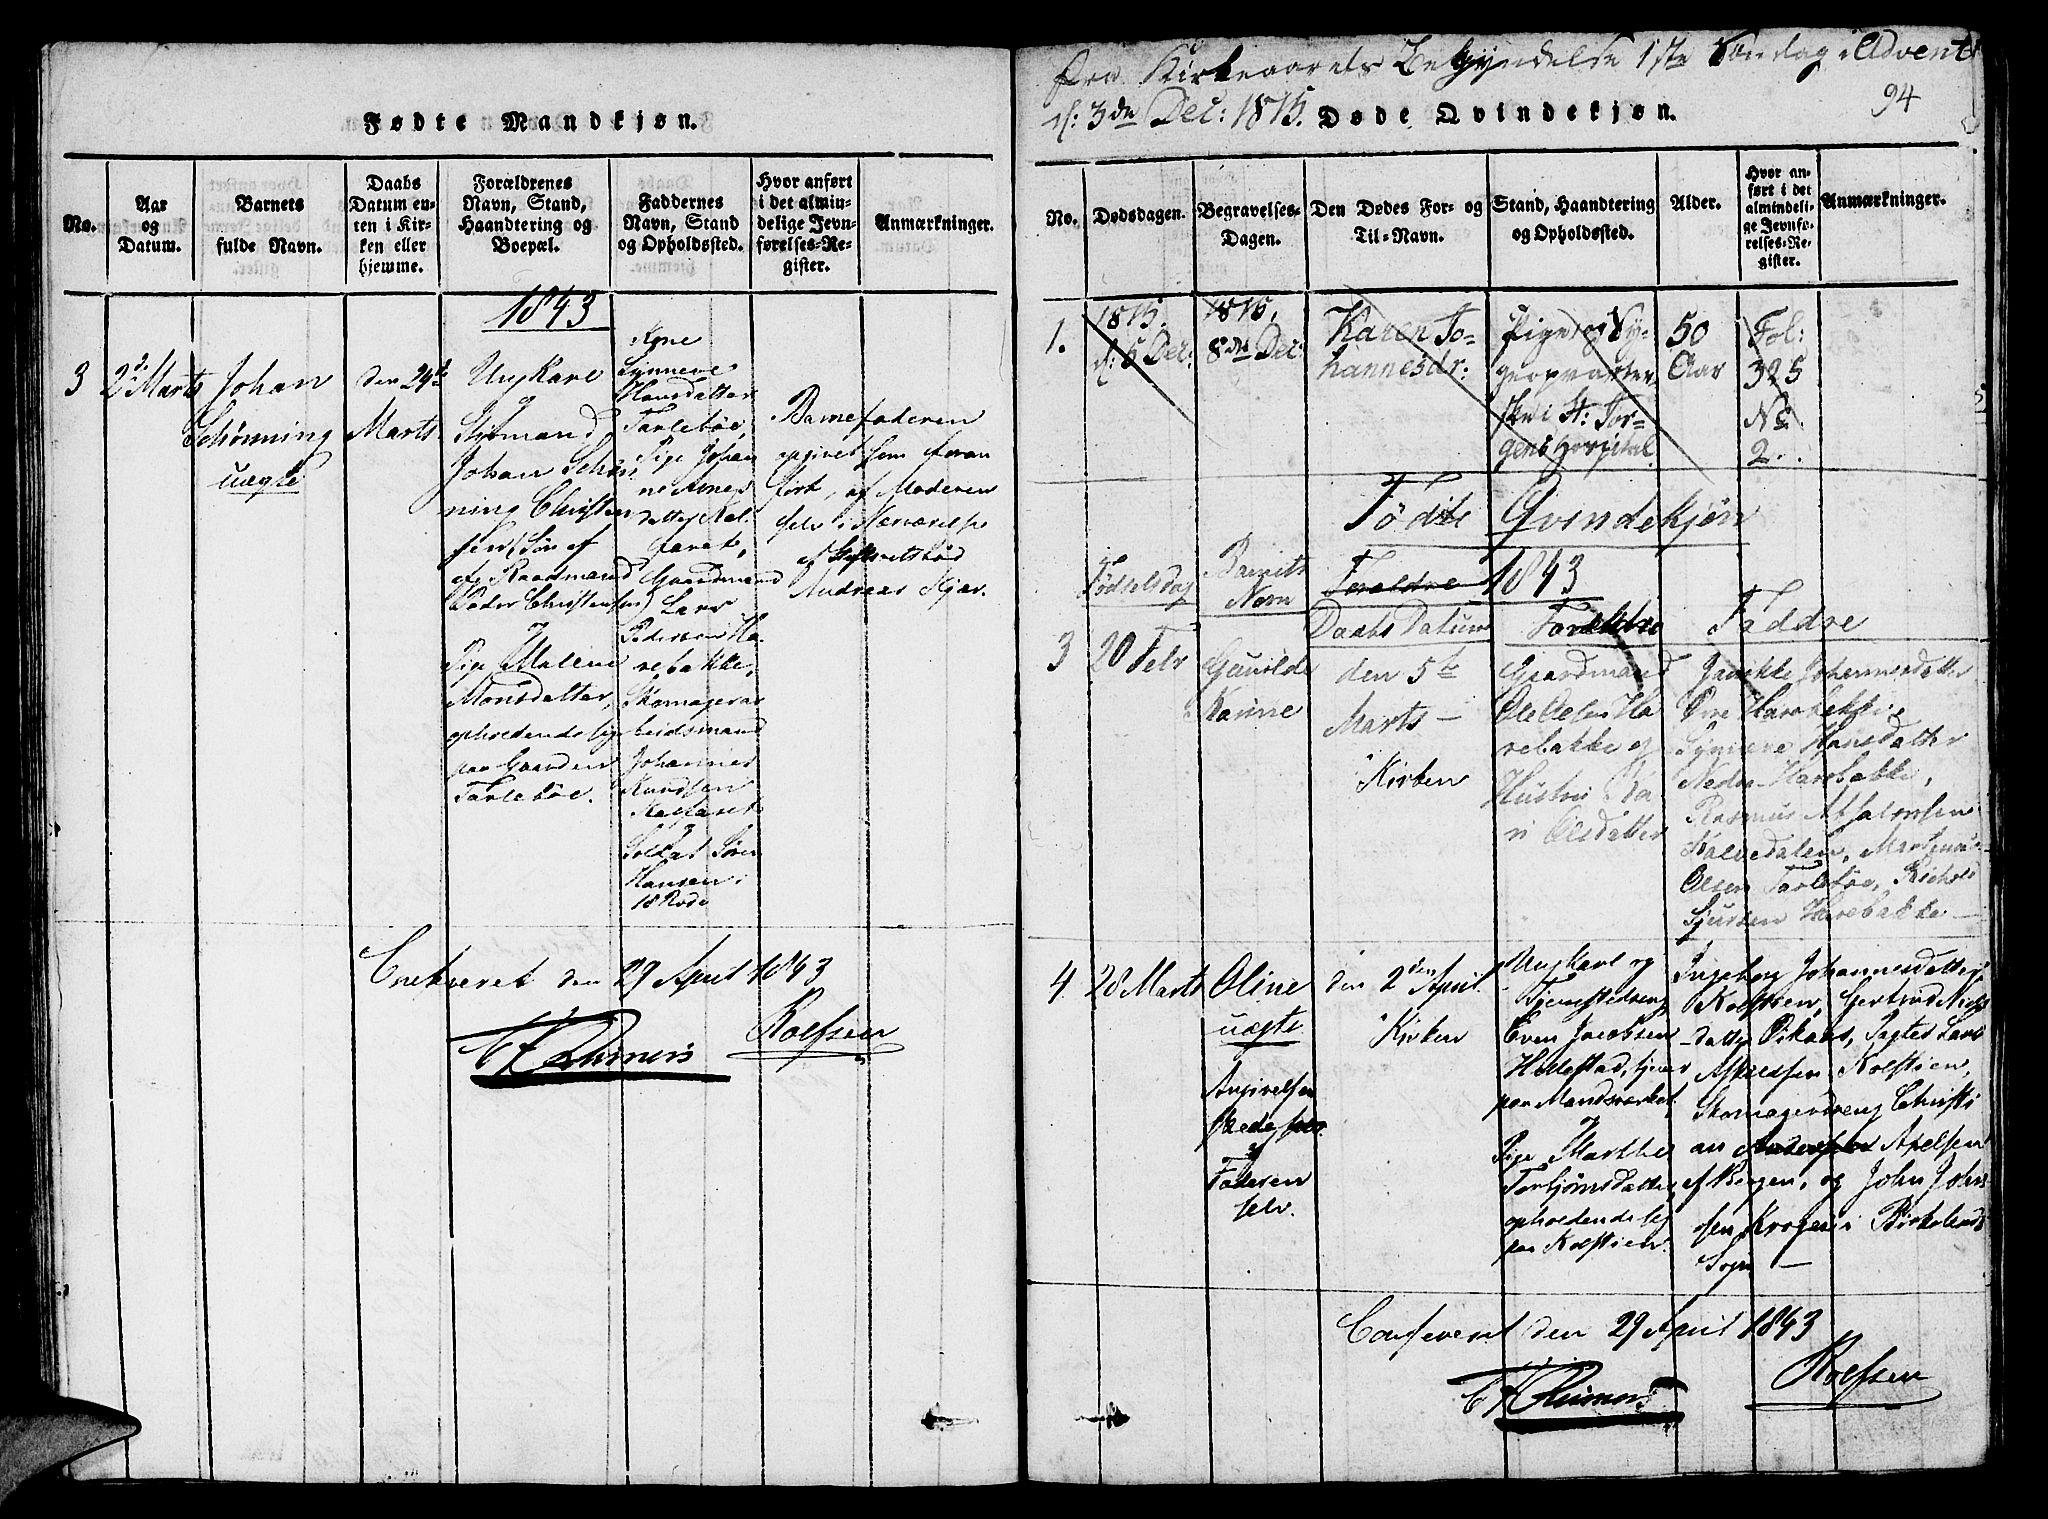 Fødte Mandkjøn.
No.
Aar
og
Datum.
Barnets
fulde Navn.
Daabs
Datum en-
ten i Kir-
ken eller
hjemme.
Forældrenes
Navn, Stand,
Haandtering og
Boepæl.
Faddernes
Navn, Stand
og Opholdssted.
Hvor anført
i det almin-
delige Jevn-
førelses-Re-
gister.
Anmærkninger.
1843
3
2d Marts
Johan
Schönning
uægte
den 24de
Marts
Ungkarl
Styrmand
Johan Schön
ning Christen
sen (Søn af
Raadmand
Peder Christensen)
og
Pige Malene
Monsdatter,
opholdende sig
paa Gaarden
Tarlebøe.
Kone
Synneve
Hansdatter
Tarlebøe,
Pige Johan
ne Arnes
datter Kal
faret,
Gaardmand
Lars
Pedersen Ha
rebakke,
Skomagerar
beidsmand
Johannes
Knudsen
Kalfaret
og
Soldat Søren
Hansen i
18 Rode
Barnefaderen
opgivet som foran
ført, af Moderen
selv i Nærværelse
af
Andreas Kjær.
Confereret den 29 April 1843
Reimers
Rolfsen
Fra Kirkeaarets Begyndelse 1ste Søndag i Advent
d: 3de Dec: 1815. Døde Qvindekjøn.
94
No.
Dødsdagen.
Begravelses-
Dagen.
Den Dødes For- og
Til-Navn.
Stand, Haandtering
og Opholdssted.
Alder.
Hvor an-
ført i det
almindeli-
ge Jevnfø-
relses-Re-
gister.
Anmærkninger.
1.
1815.
d: 6 Dec:
1815.
8de Dec:
Karen Jo-
hannesdr:
Pige og Sy-
geopvarter-
ske i St: Jør-
gens Hospital.
50
Aar
Fol:
325
No
2.
Födte Qvindekjön
Födselsdag
Barnets
Navn
Forældre
1843
Daabs Datum
Forældre
Faddre
3
20 Febr
Gunilde
Karine
den 5te
Marts —
i Kirken
Gaardmand
Ole Olsen Ha
rebakke og
Hustru Ka
ri Olsdatter
Jannikke Johannesdatter
Øvre Harebakke,
Synneve Hansdatter
Nedre Harebakke,
Rasmus Absalonsen
Kalvedalen, Magnus
Olsen Tarlebøe, Rickert
Sjursen Harebakke —
4
28 Marts
Oline
uægte
Angivelsen
skede
af
Faderen
selv.
den 2den April
i Kirken
Ungkarl og
Tjenestedreng
Even Jacobsen
Hillestad, tjener
paa Mandsværket,
og
Pige Marthe
Torbjørnsdatter,
opholdende sig
paa Kolstien.
Ingeborg Johannesdatter
Kolstien, Gertrud Niels
datter Pikaas, Pagter Lars
Askelsen Kolstien,
Skomagerdreng Christi
an Andersen Axelsen
af Bergen, og John John
sen Kroger i Birkelands
Sogn —
Confereret den 29 April 1843
Reimers
Rolfsen